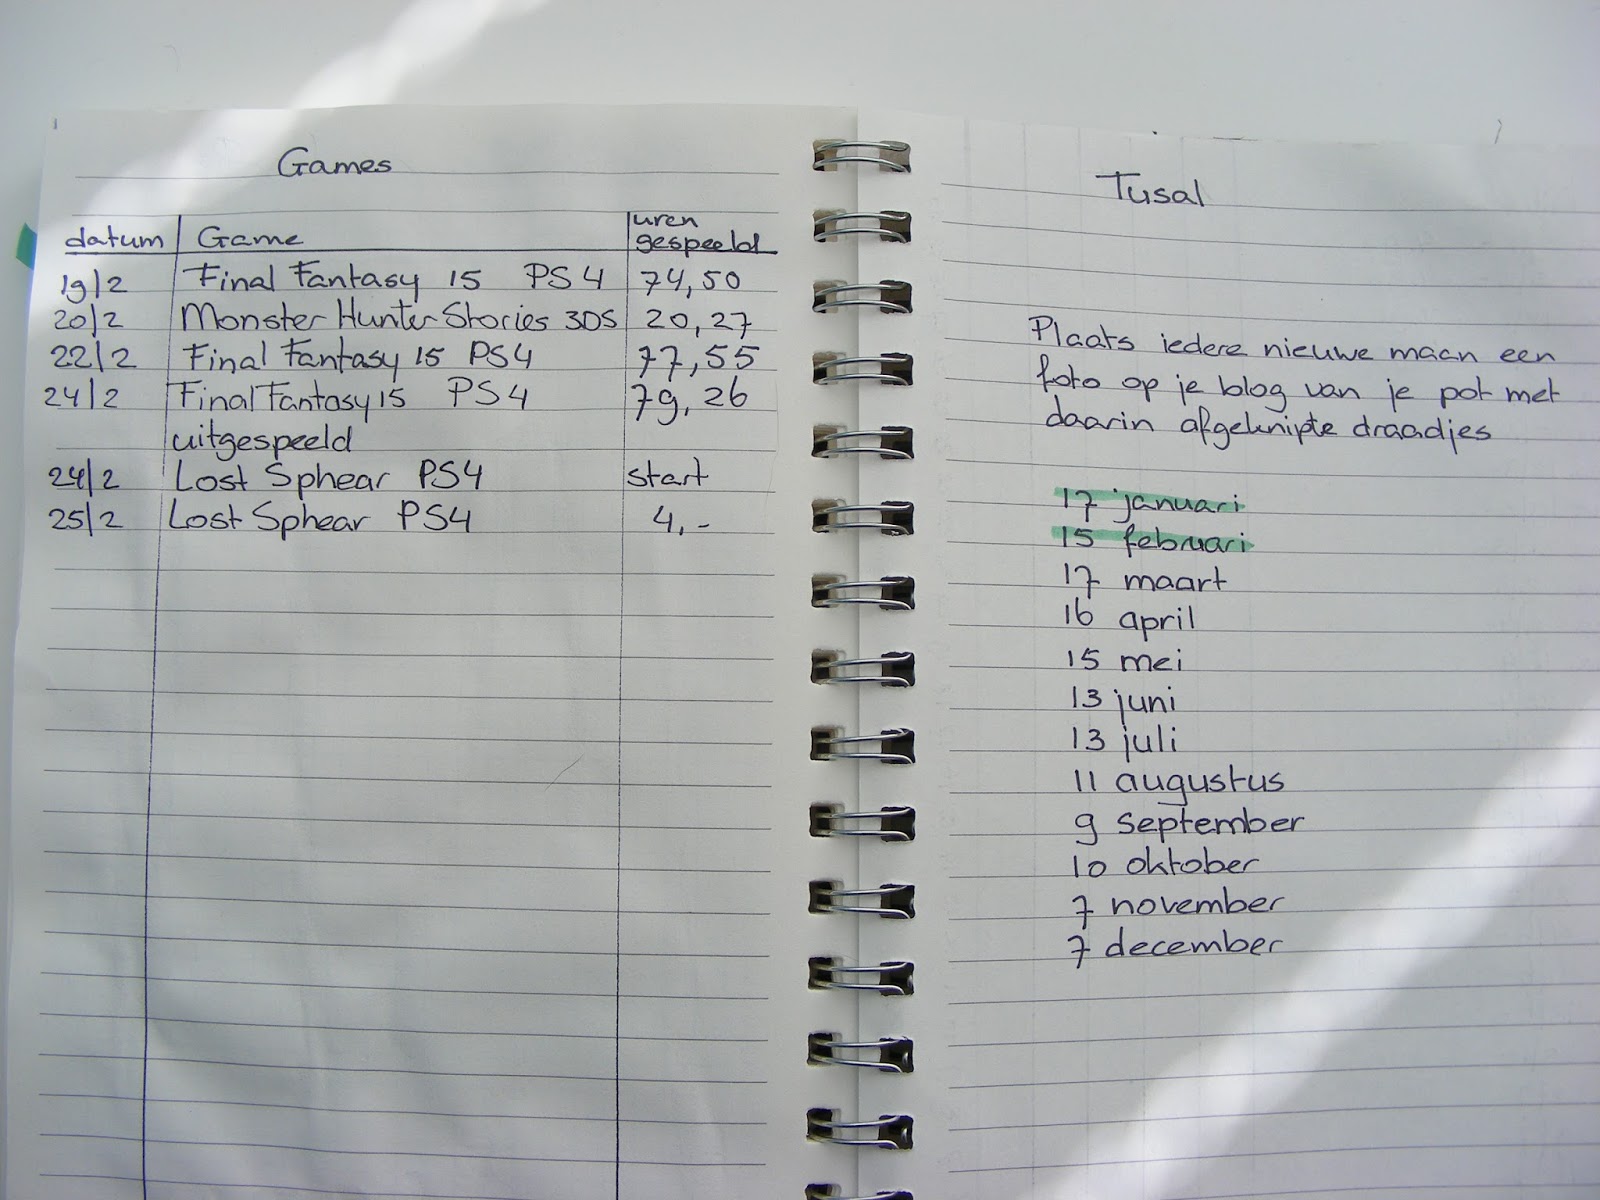 Games
datum Game uren gespeeld
19/2 Final Fantasy 15 PS4 74,50
20/2 Monster Hunter Stories 3DS 20,27
22/2 Final Fantasy 15 PS4 77,55
24/2 Final Fantasy 15 PS4 79,26
uitgespeeld
24/2 Lost Sphear PS4 start
25/2 Lost Sphear PS4 4,-
Tusal
Plaats iedere nieuwe maan een
foto op je blog van je pot met
daarin afgeknipte draadjes
17 januari
15 februari
17 maart
16 april
15 mei
13 juni
13 juli
11 augustus
9 september
10 oktober
7 november
7 december